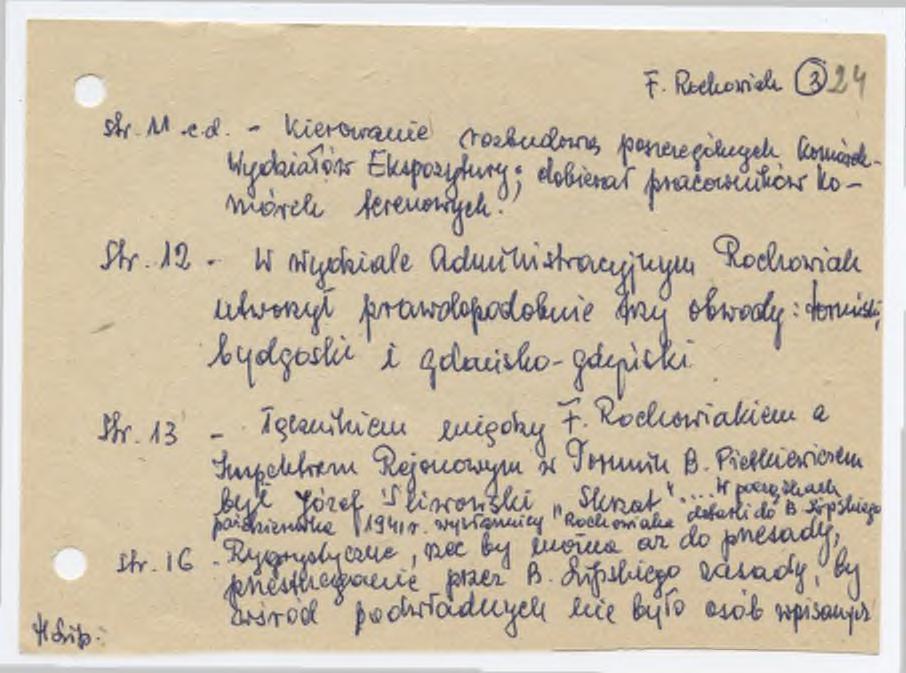 F. Rochowiak ③ 24
str. 11 c.d. - Kierowanie rozbudową poszczególnych komórek
Wydziałów Ekspozytury; dobierał pracowników ko-
mórek terenowych.
Str. 12 - W wydziale Administracyjnym Rochowiak
utworzył prawdopodobnie trzy obwody: toruński,
bydgoski i gdańsko-gdyński
Str. 13 - Łącznikiem między F. Rochowiakiem a
Inspektorem Rejonowym w Toruniu B. Pietkiewiczem
był Józef Śliwowski "Skrzat".... W początkach
października 1941 r. wysłannicy "Rochowiaka dotarli do B. Lipskiego
Str. 16 - Rygorystyczne, rzec by można aż do przesady,
przestrzeganie przez B. Lipskiego zasady, by
wśród podwładnych nie było osób wpisanych